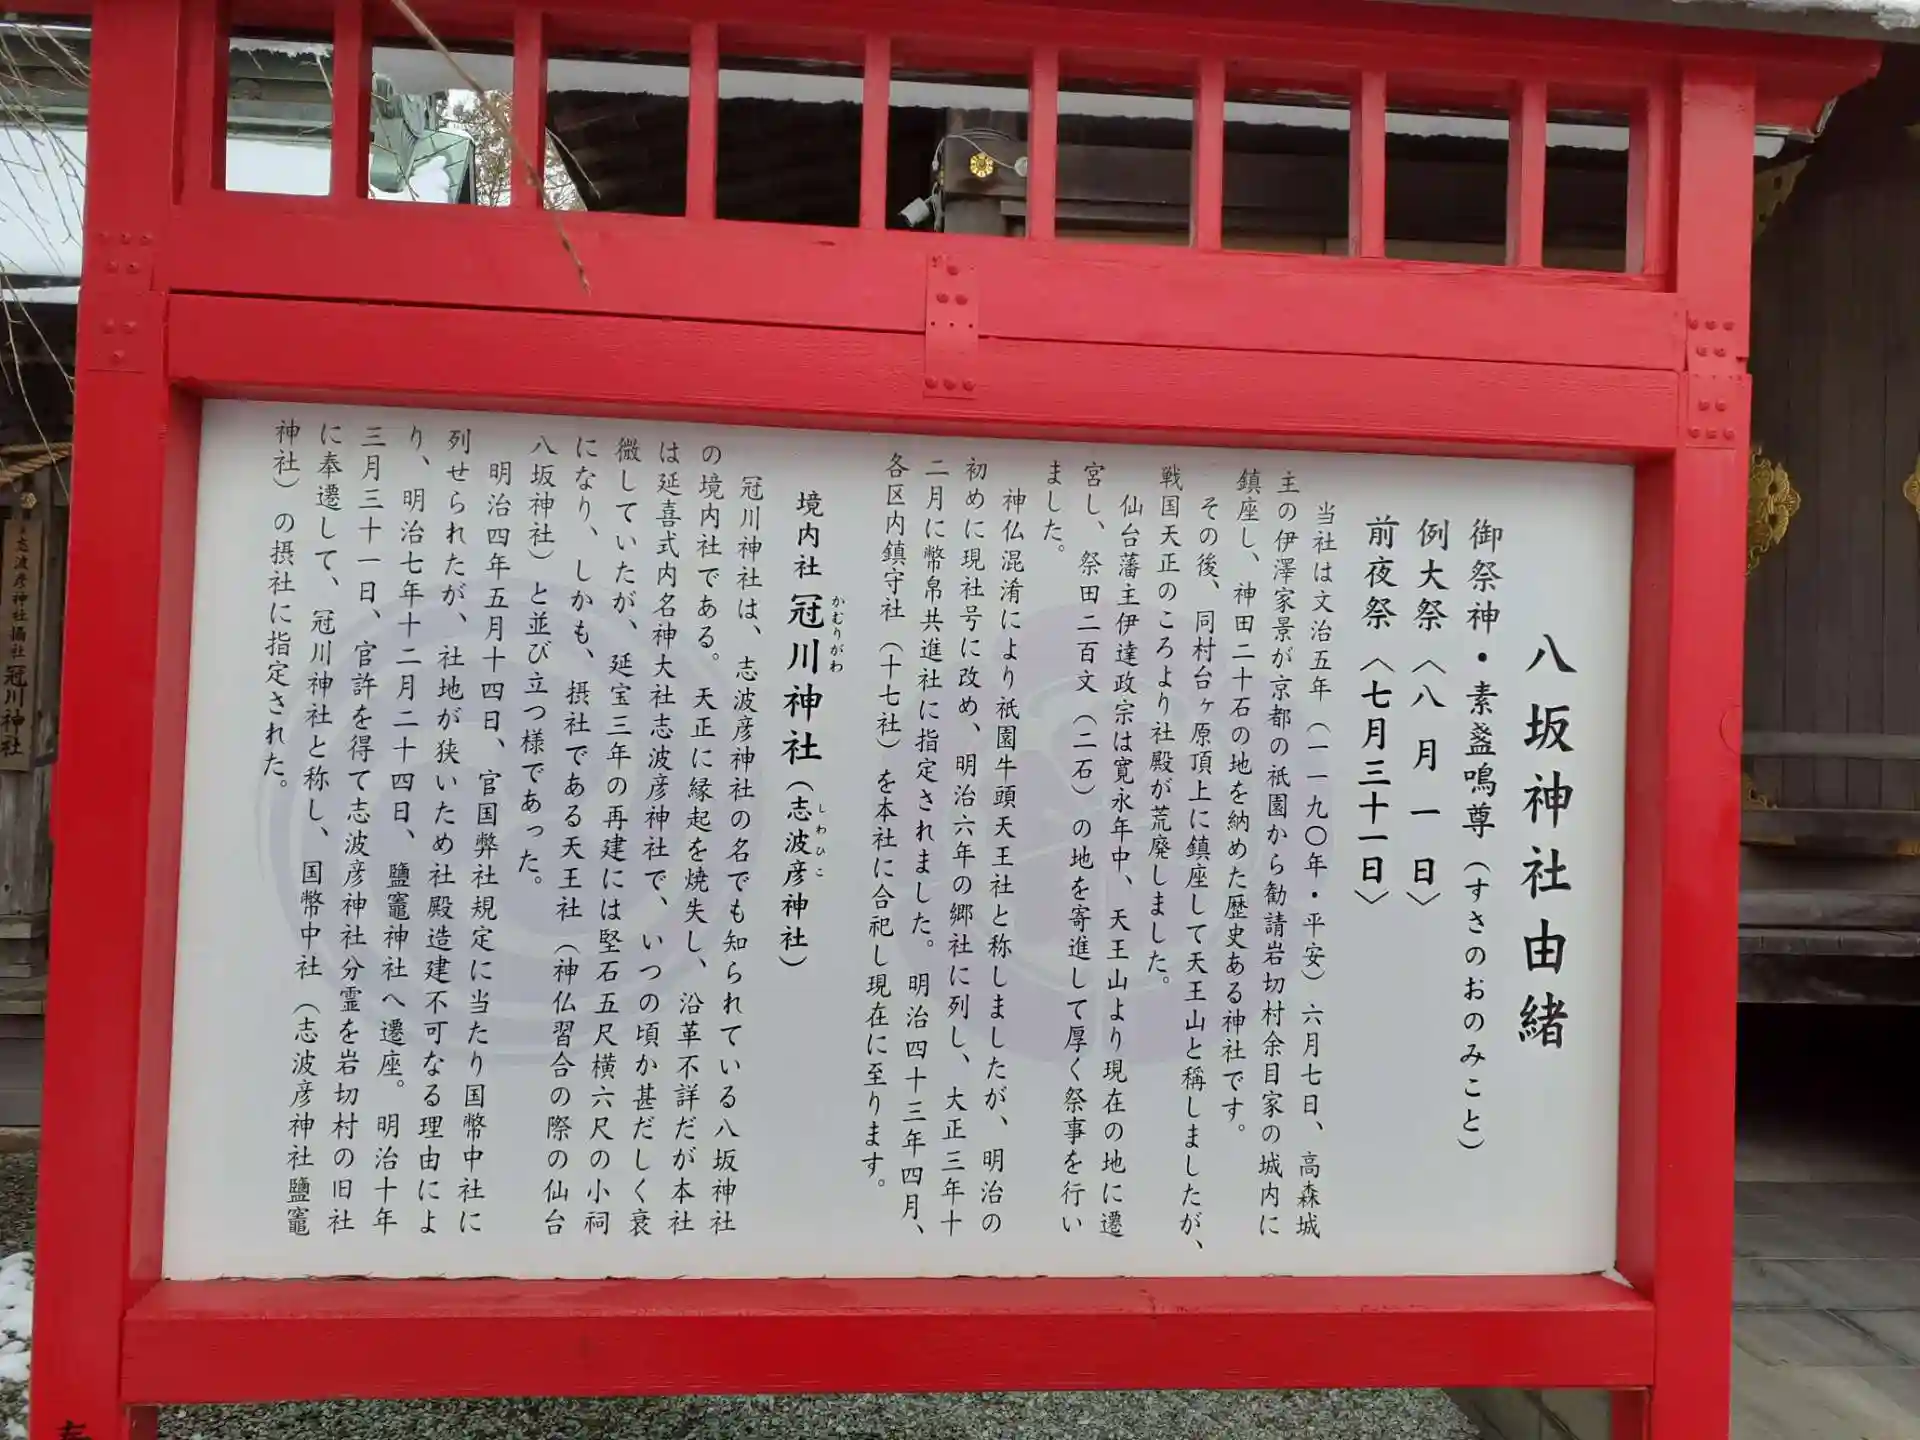 八坂神社由緒
御祭神・素盞鳴尊（すさのおのみこと）
例大祭〈八月一日〉
前夜祭〈七月三十一日〉
当社は文治五年（一一九〇年・平安）六月七日、高森城
主の伊澤家景が京都の祇園から勧請岩切村余目家の城内に
鎮座し、神田二十石の地を納めた歴史ある神社です。
その後、同村台ヶ原頂上に鎮座して天王山と稱しましたが、
戦国天正のころより社殿が荒廃しました。
仙台藩主伊達政宗は寛永年中、天王山より現在の地に遷
宮し、祭田二百文（二石）の地を寄進して厚く祭事を行い
ました。
神仏混淆により祇園牛頭天王社と称しましたが、明治の
初めに現社号に改め、明治六年の郷社に列し、大正三年十
二月に幣帛共進社に指定されました。明治四十三年四月、
各区内鎮守社（十七社）を本社に合祀し現在に至ります。
境内社 冠川神社（志波彦神社）
かむりがわ
しわひこ
冠川神社は、志波彦神社の名でも知られている八坂神社
の境内社である。天正に縁起を焼失し、沿革不詳だが本社
は延喜式内名神大社志波彦神社で、いつの頃か甚だしく衰
微していたが、延宝三年の再建には堅石五尺横六尺の小祠
になり、しかも、摂社である天王社（神仏習合の際の仙台
八坂神社）と並び立つ様であった。
明治四年五月十四日、官国弊社規定に当たり国幣中社に
列せられたが、社地が狭いため社殿造建不可なる理由によ
り、明治七年十二月二十四日、鹽竈神社へ遷座。明治十年
三月三十一日、官許を得て志波彦神社分霊を岩切村の旧社
に奉遷して、冠川神社と称し、国幣中社（志波彦神社鹽竈
神社）の摂社に指定された。
志波彦神社摂社 冠川神社
奉